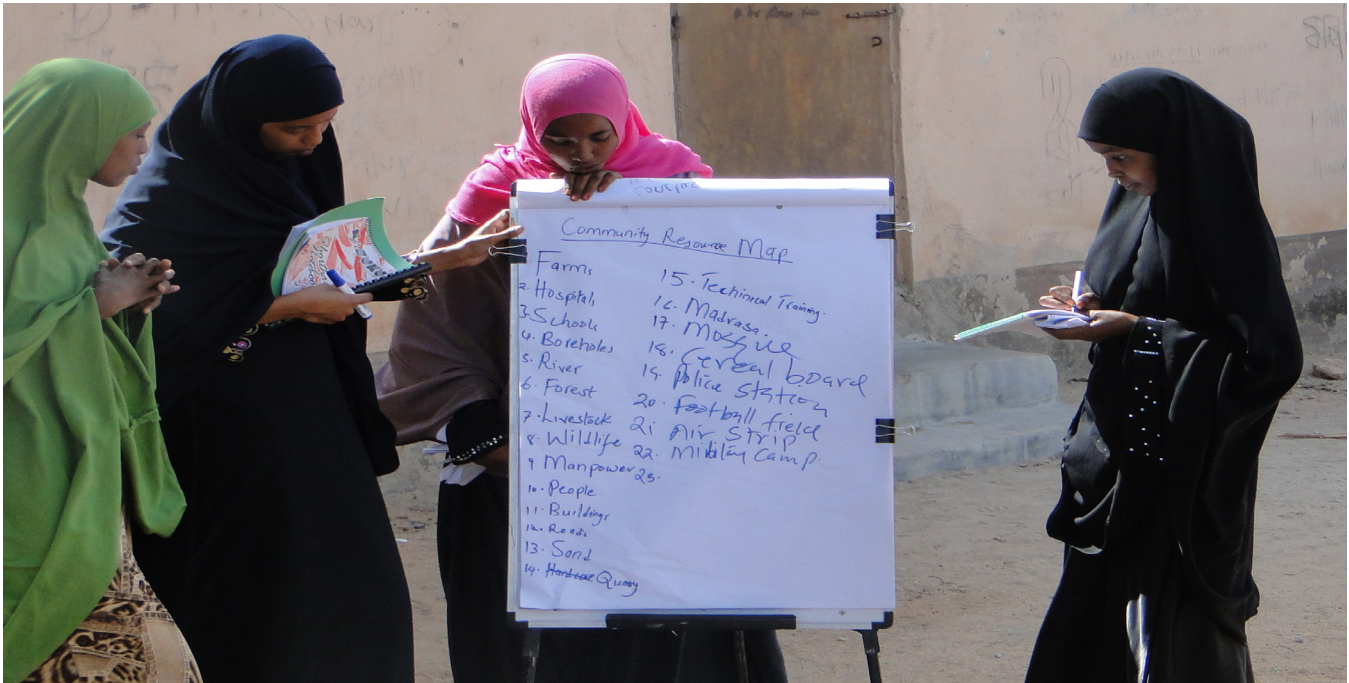 Community Resource Map
Farms
2. Hospitals
3. Schools
4. Boreholes
5. River
6. Forest
7. Livestock
8. Wildlife
9 Manpower
10. People
11. Buildings
12. Roads
13. Sand
14. Hardcore Quarry
15. Techinical Training.
16. Madrasa.
17. Mosque
18. Cereal board
19. Police Station
20. Football field
21 Air Strip
22. Military Camp
23.